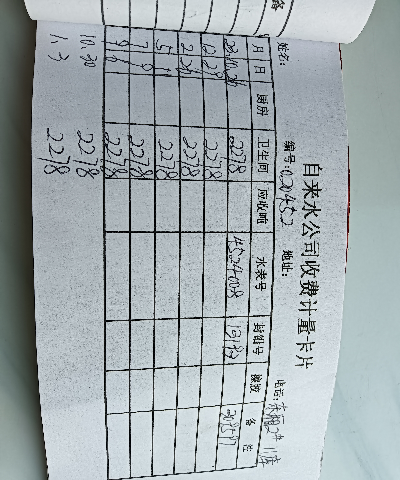 备
自来水公司收费计量卡片
姓名: 编号:020452 地址: 电话:
月 日 厨房 卫生间 应收吨 水表号 封铅号 橡胶 备 注
20.10.26 2278 45244008
12.28 2278
2.26 2278
5.1 2278
7.8 2278
9.6 2278
10.30 2278
1.3 2278